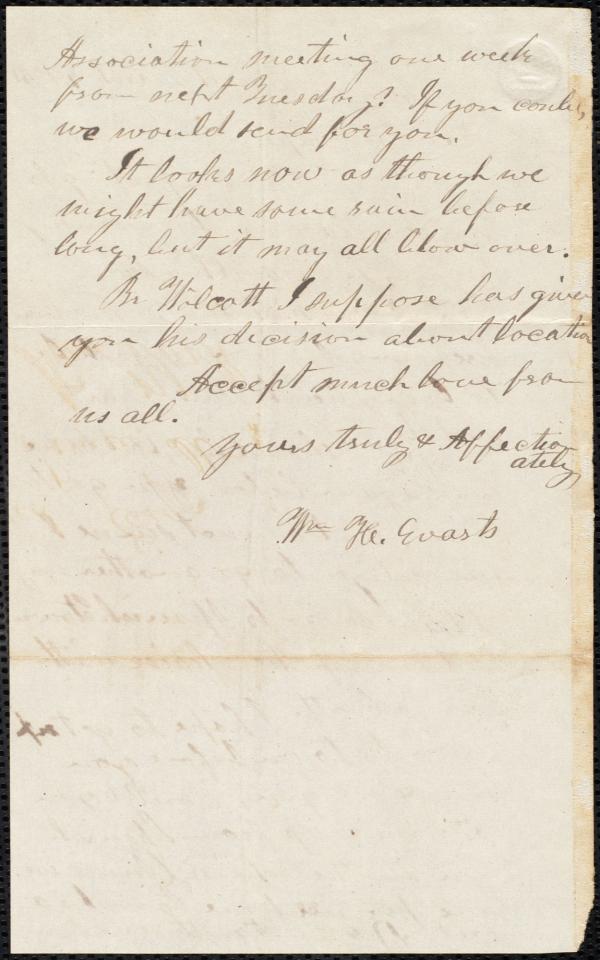 Association meeting one week
from next Tuesday? If you could,
we would send for you.
It looks now as though we
might have some rain before
long, but it may all blow over.
Br Wilcott I suppose has given
you his decision about location
Accept much love from
us all.
Yours truly & Affection
ately
Wm H. Evarts